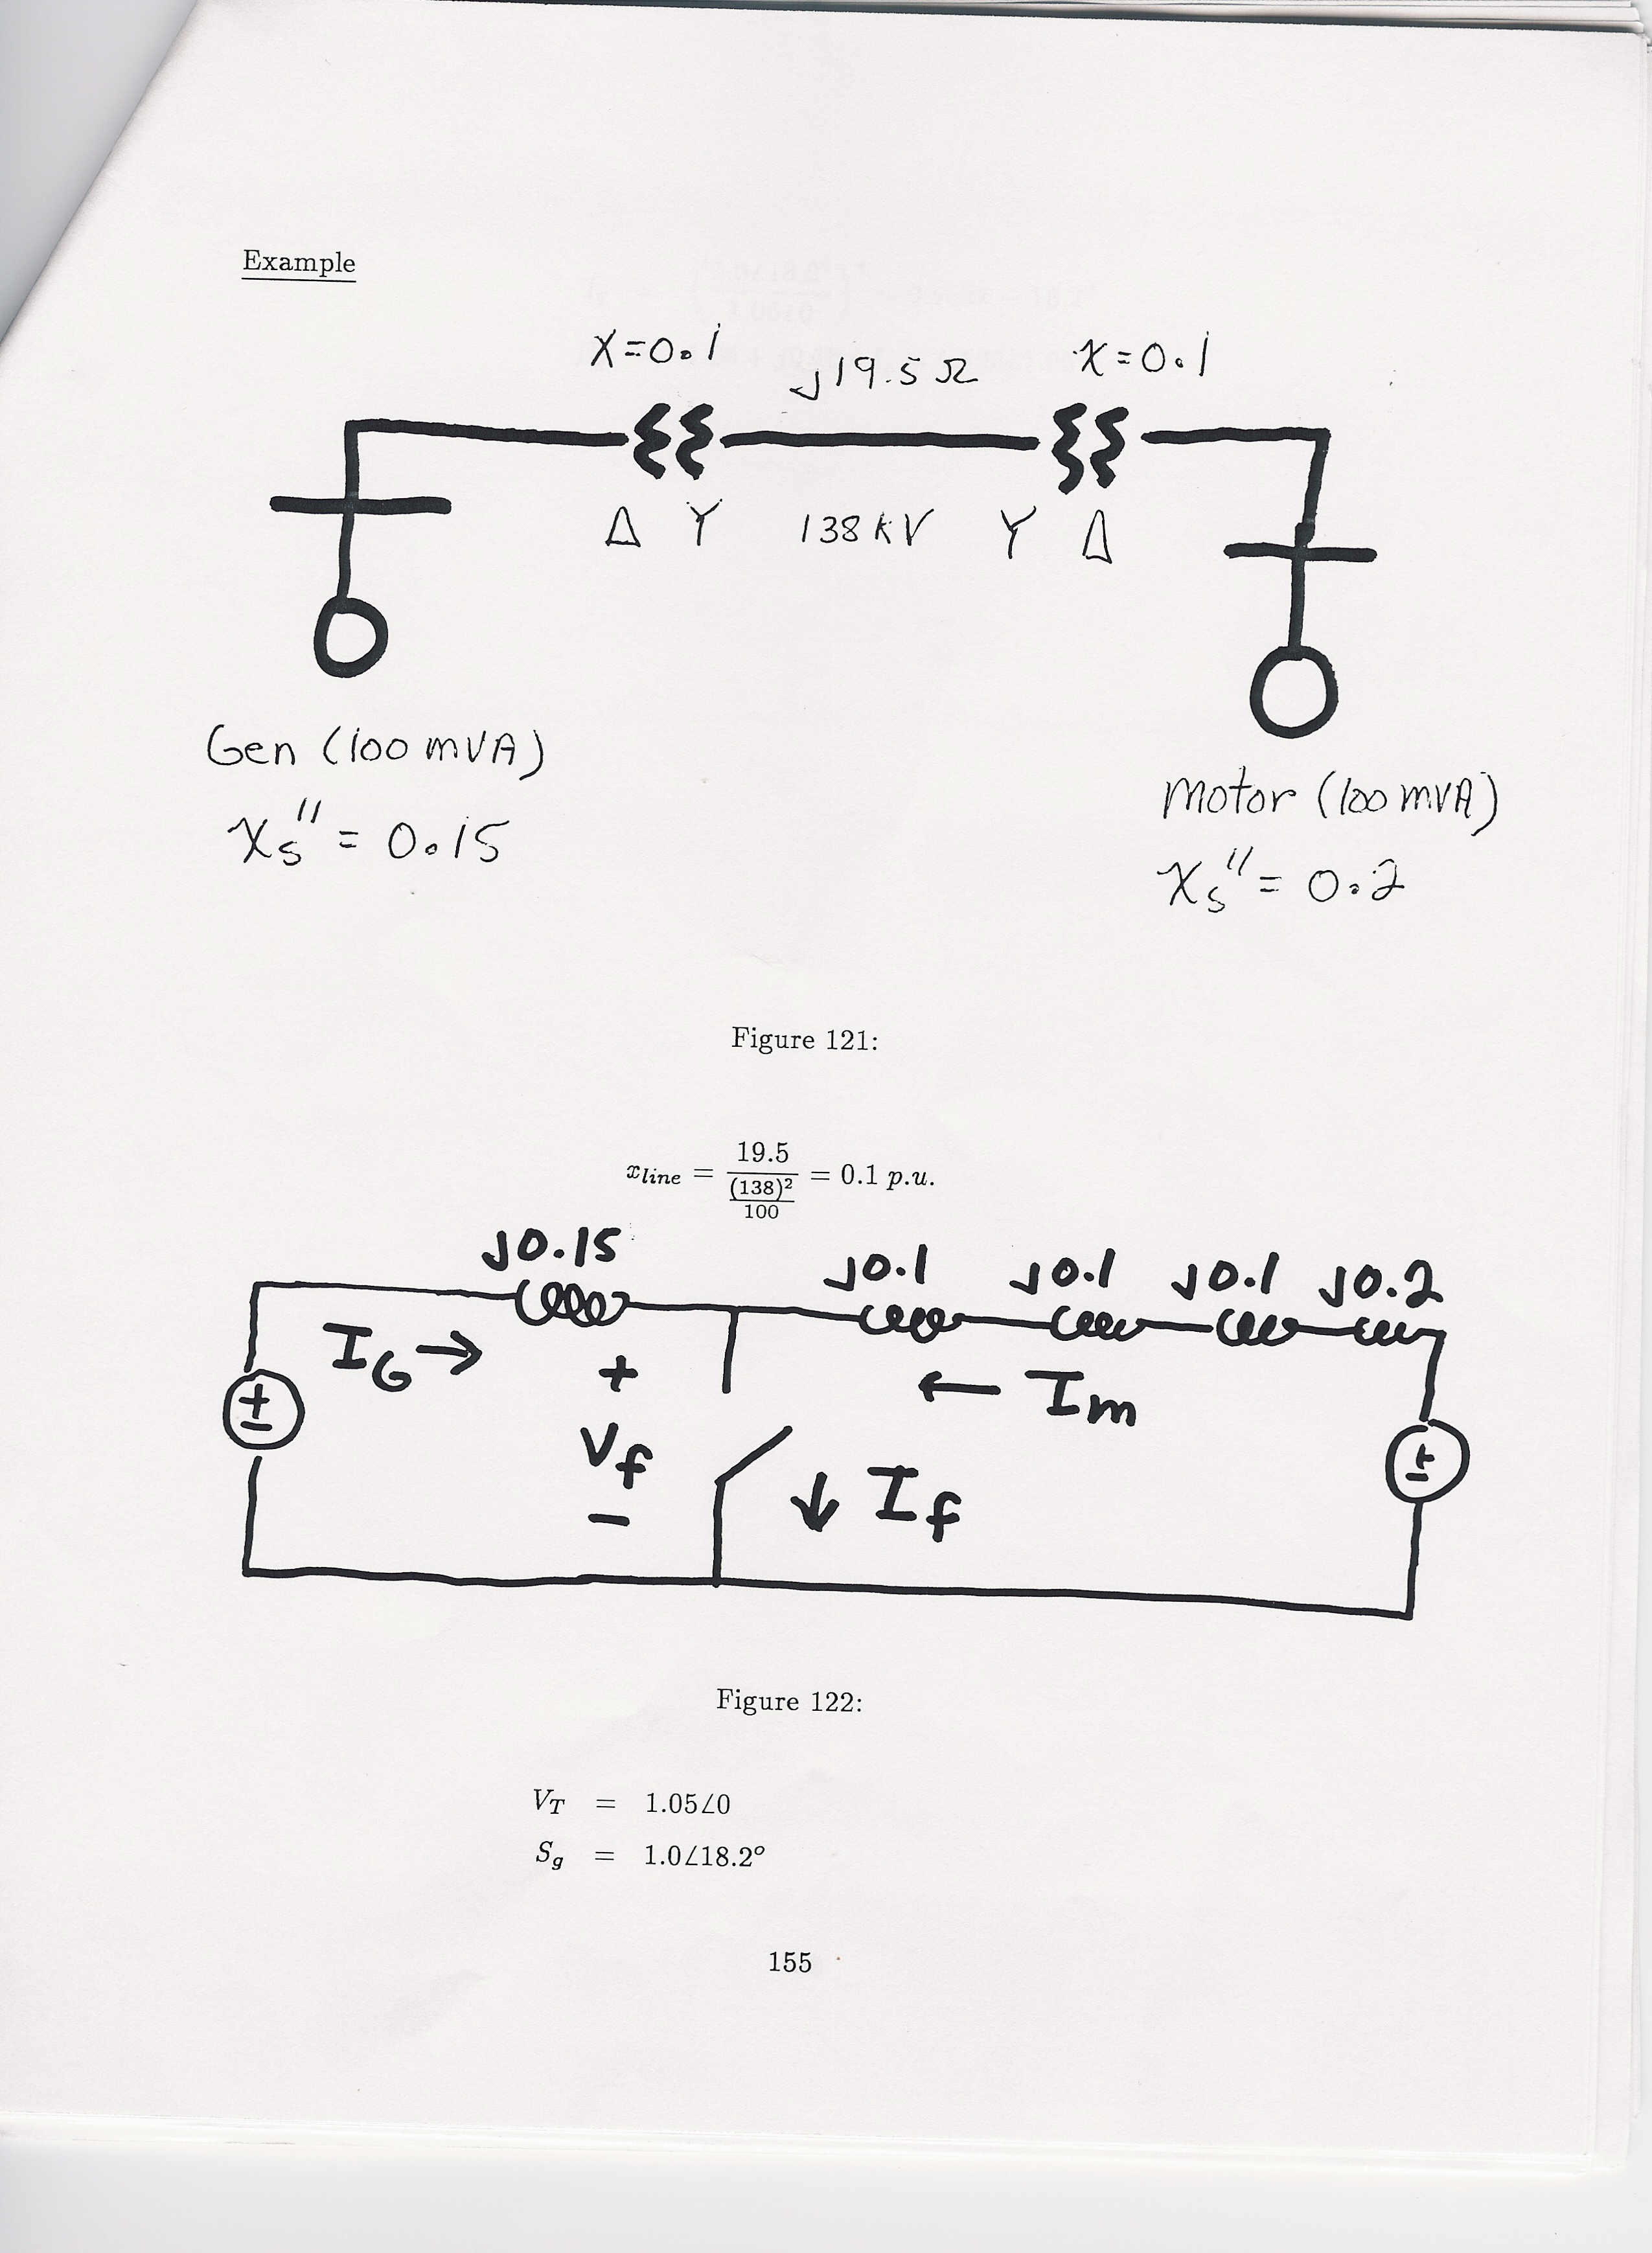 Example
X=0.1
j19.5Ω
X=0.1
Δ Y 138 kV Y Δ
Gen (100 mVA)
Xs'' = 0.15
Motor (100 mVA)
Xs'' = 0.2
Figure 121:
x_line = 19.5 / ((138)² / 100) = 0.1 p.u.
j0.15
j0.1 j0.1 j0.1 j0.2
I_G →
+
V_f
−
← I_m
↓ I_f
+
−
±
Figure 122:
V_T = 1.05∠0
S_g = 1.0∠18.2°
155